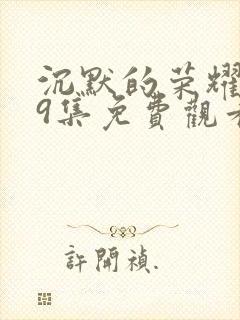 沉默的荣耀
9集免費觀看
許開禎.